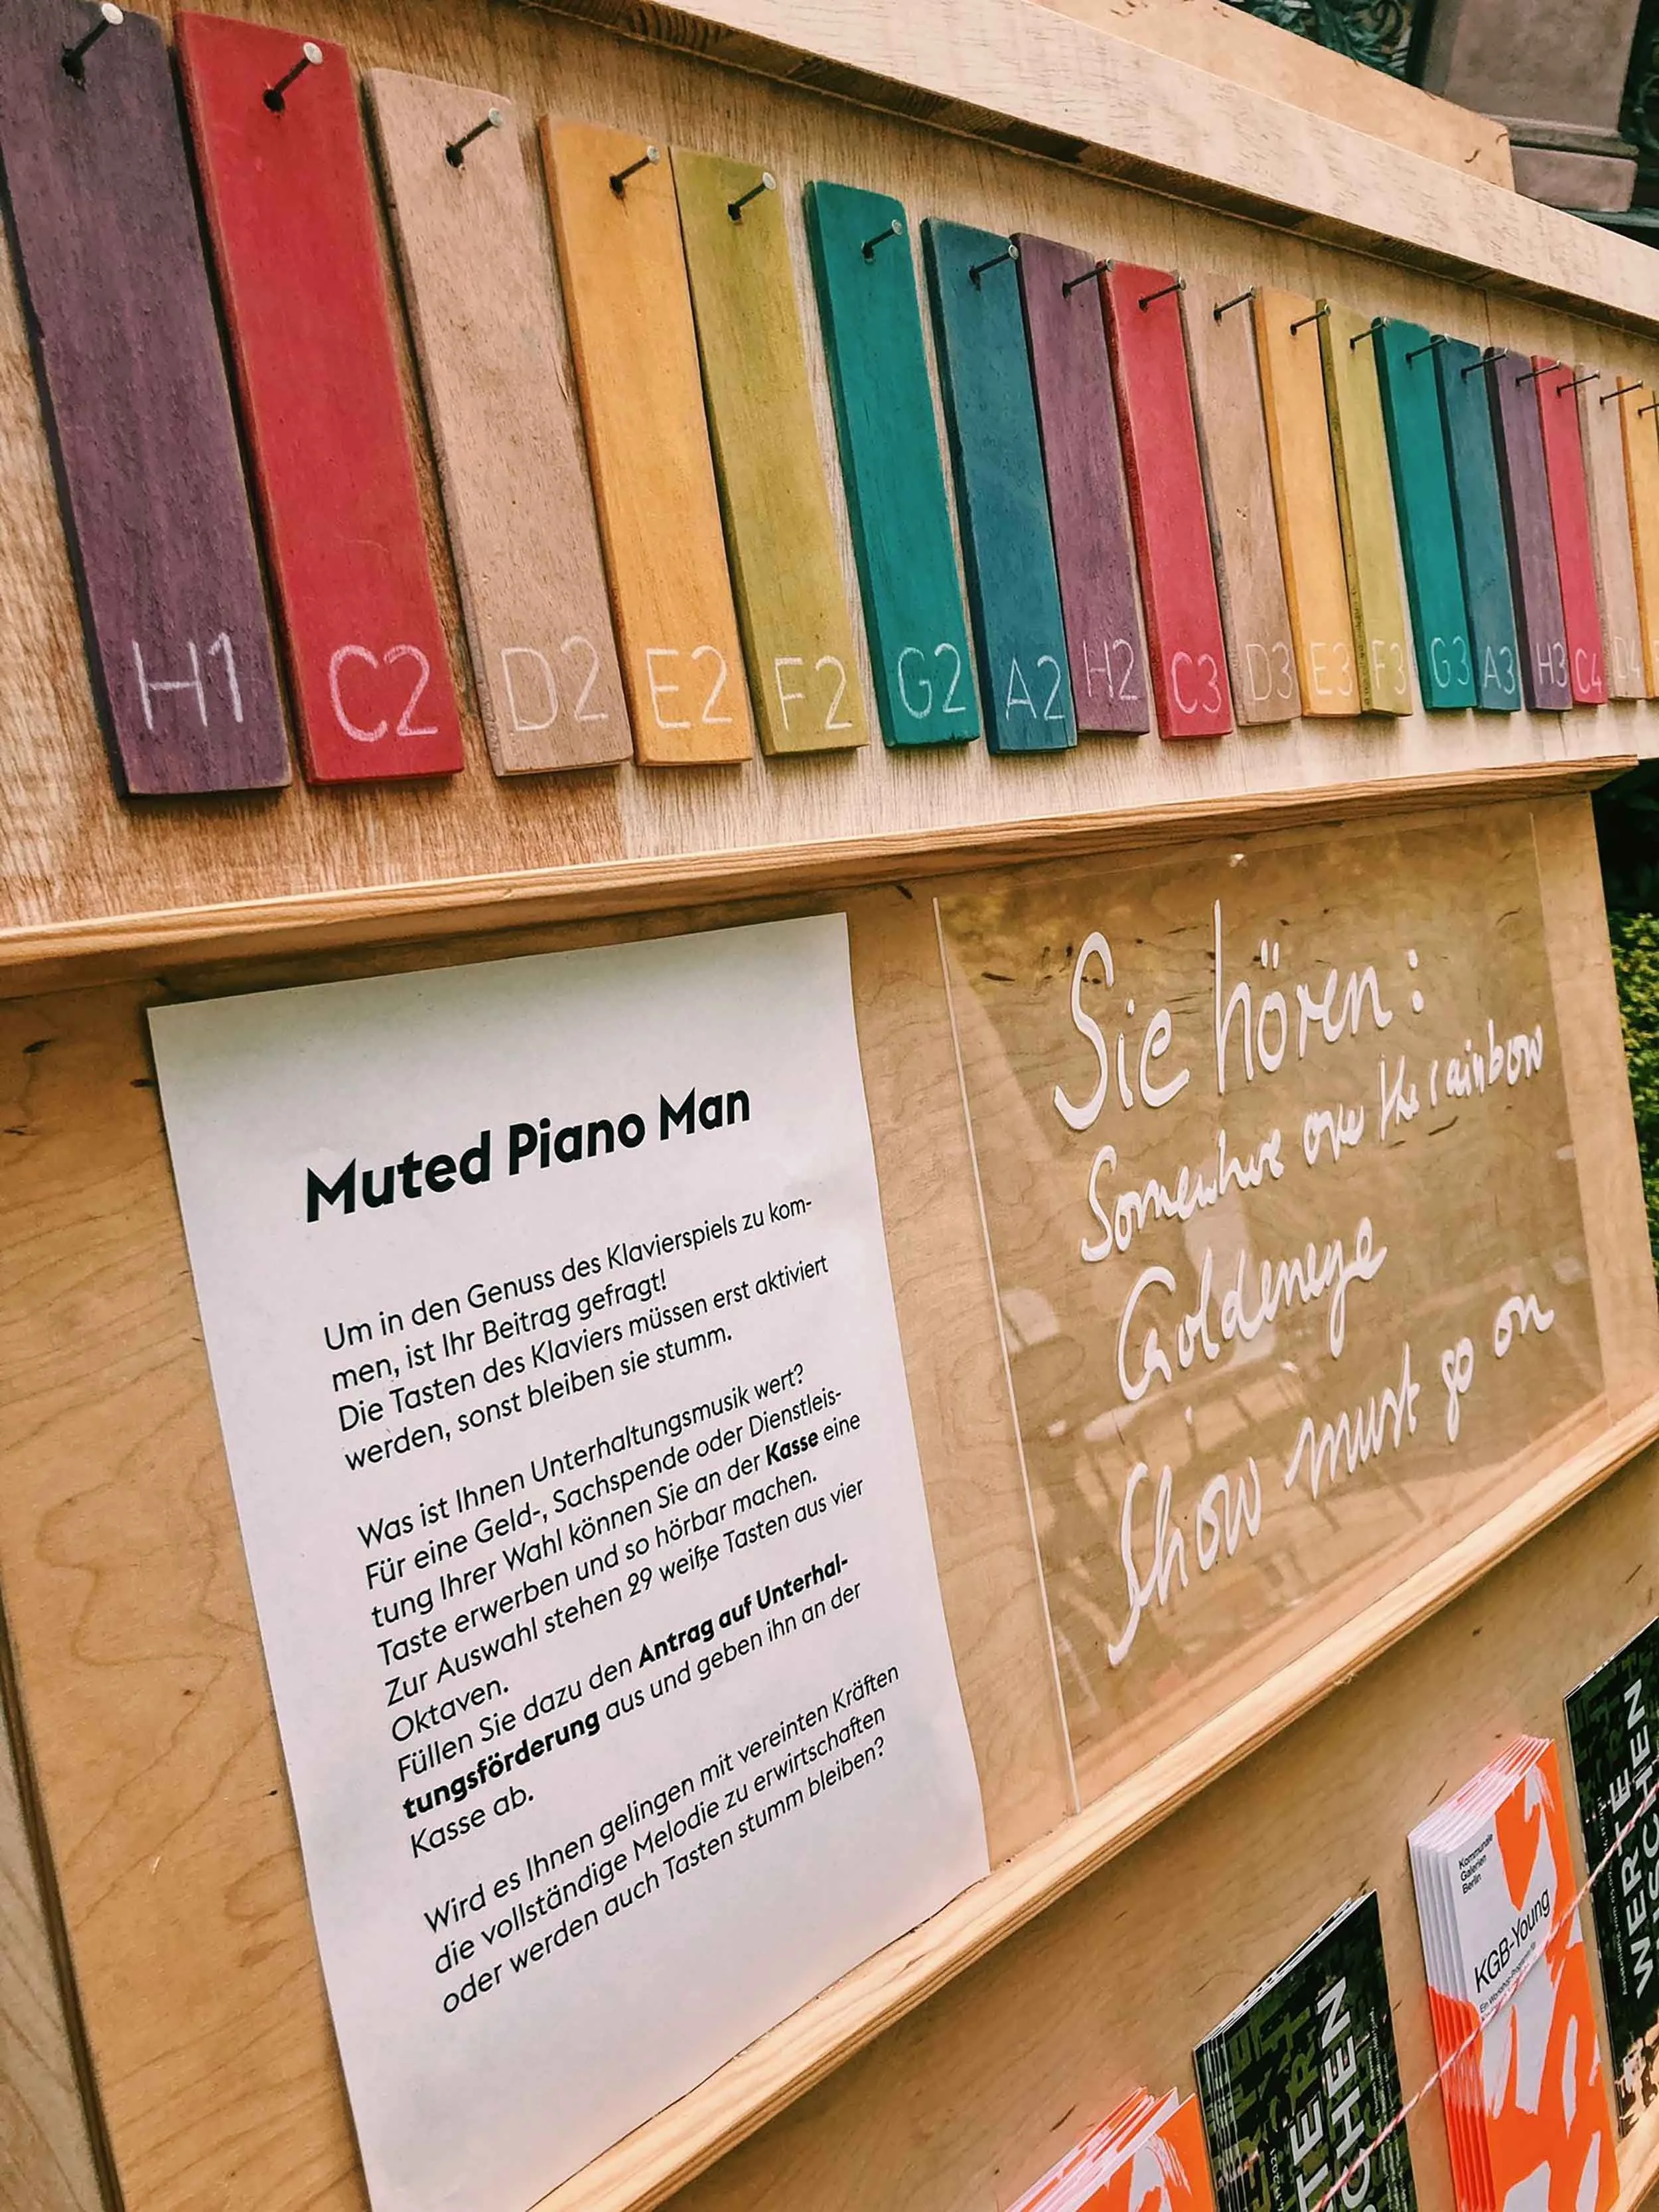 H1 C2 D2 E2 F2 G2 A2 H2 C3 D3 E3 F3 G3 A3 H3 C4 D4
Muted Piano Man
Um in den Genuss des Klavierspiels zu kom-
men, ist Ihr Beitrag gefragt!
Die Tasten des Klaviers müssen erst aktiviert
werden, sonst bleiben sie stumm.
Was ist Ihnen Unterhaltungsmusik wert?
Für eine Geld-, Sachspende oder Dienstleis-
tung Ihrer Wahl können Sie an der Kasse eine
Taste erwerben und so hörbar machen.
Zur Auswahl stehen 29 weiße Tasten aus vier
Oktaven.
Füllen Sie dazu den Antrag auf Unterhal-
tungsförderung aus und geben ihn an der
Kasse ab.
Wird es Ihnen gelingen mit vereinten Kräften
die vollständige Melodie zu erwirtschaften
oder werden auch Tasten stumm bleiben?
Sie hören:
Somewhere over the rainbow
Goldeneye
Show must go on
Kommunale
Galerien
Berlin
KGB-Young
WERTE